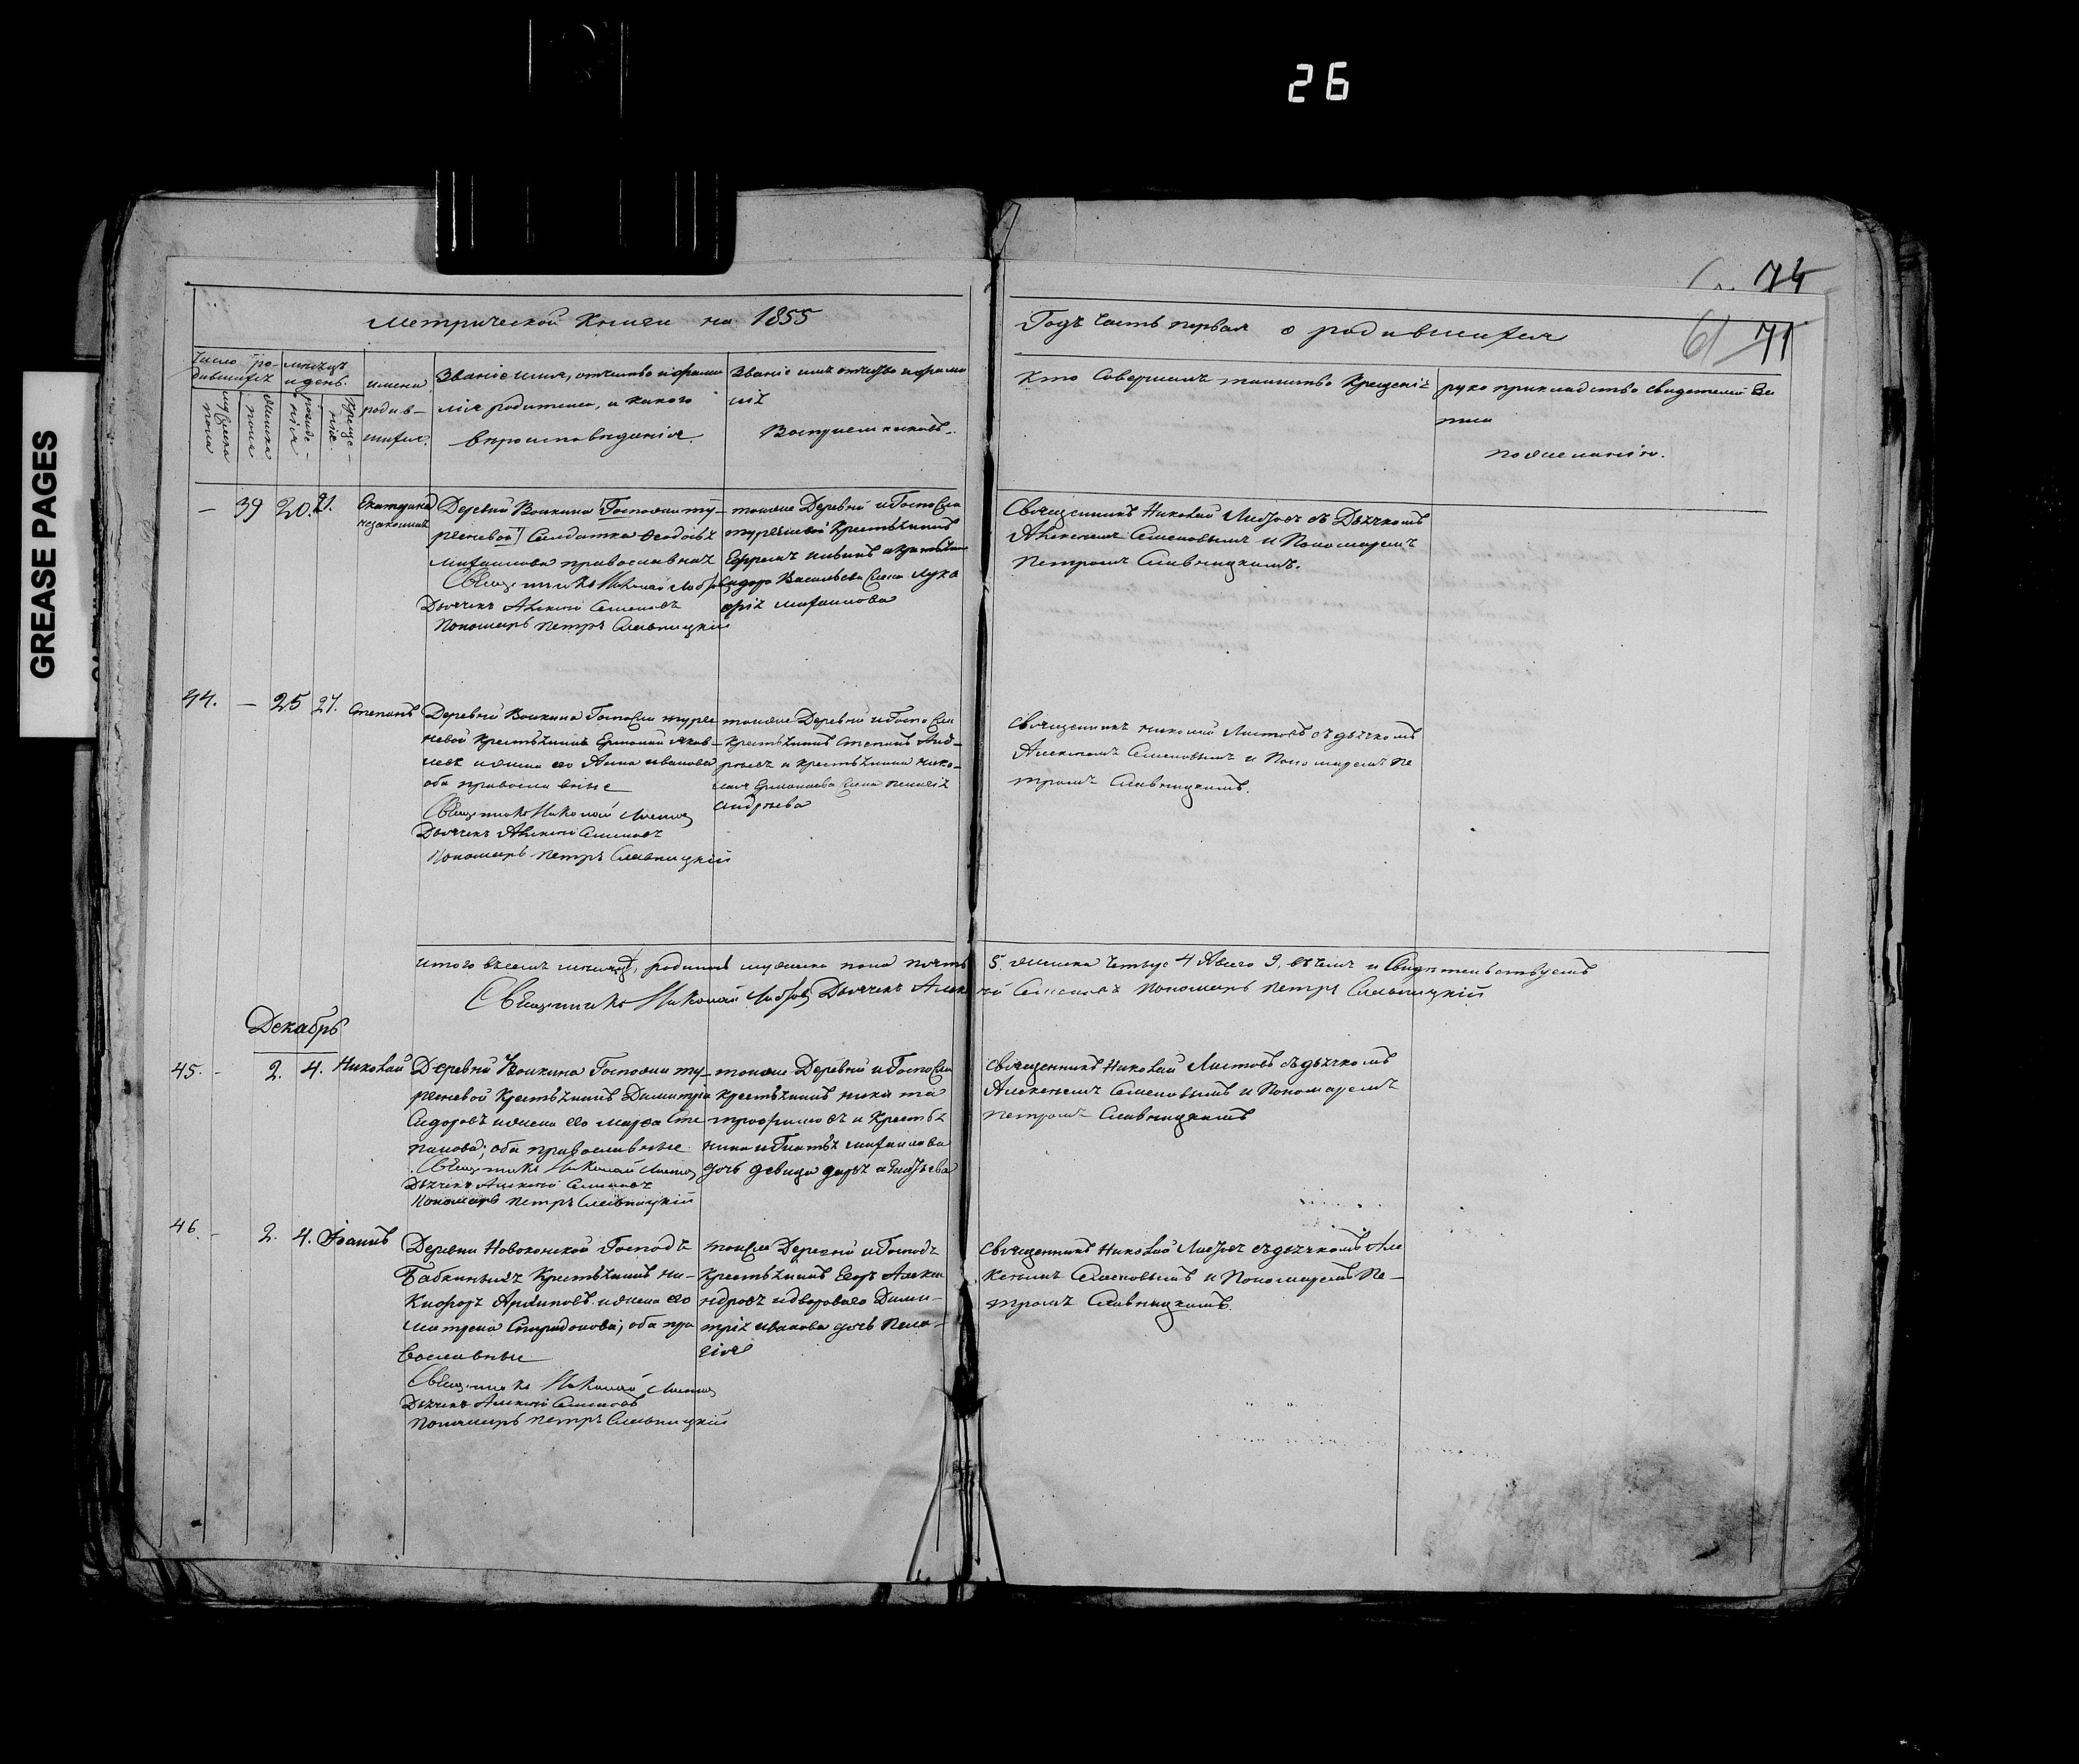 26
GREASE PAGES
74
61 71
Метрической Книги на 1855
Годъ Часть первая о родившихся
Число родившихся
мѣсяцъ и день.
имена родившихся.
Званіе имя, отчество и фамилія родителей, и какого вѣроисповѣданія.
Званіе имя отчество и фамилія Воспріемниковъ.
Кто Совершалъ таинство Крещенія
рукоприкладство свидетелей записи по желанію.
мужеска пола
женска пола
рожденія
крещенія.
— 39 20. 21. Екатерина незаконная
Деревни Воикина Госпожи Ту-
ргеневой Солдатка Феодосія
Михаилова православная
Священникъ Николай
Дьячекъ Алексѣй Семеновъ
Пономарь Петръ Славницкій
тойже Деревни и Госпожи
Тургеневой Крестьянинъ
Ефремъ
Сидора Васильева жена Лукерія Михаилова
Священникъ Николай съ Дьячкомъ
Алексѣемъ Семеновымъ и Пономаремъ
Петромъ Славницкимъ.
44. — 25 27. Степанъ
Деревни Воикина Госпожи Турге-
невой Крестьянинъ Ермолай Яков-
левъ и жена его Анна Иванова
оба православные
Священникъ Николай
Дьячекъ Алексѣй Семеновъ
Пономарь Петръ Славницкій
тойже Деревни и Госпожи
Крестьянинъ Степанъ Анд-
реевъ и крестьянина Нико-
лая Ермолаева жена Пелагія
Андреева
Священникъ Николай съ дьячкомъ
Алексѣемъ Семеновымъ и Пономаремъ Пе-
тромъ Славницкимъ.
итого въ семъ мѣсяцѣ, родилось мужеска пола пять 5. женска четыре 4 Авсего 9, въ чемъ и Свидѣтельствуемъ
Священникъ Николай Дьячекъ Алексѣй Семеновъ Пономарь Петръ Славницкій
Декабрь
45. - 2. 4. Николай
Деревни Воикина Госпожи Ту-
ргеневой Крестьянинъ Димитрій
Сидоровъ и жена его Марфа Сте-
панова; оба православные
Священникъ Николай
Дьячекъ Алексѣй Семеновъ
Пономарь Петръ Славницкій
тойже Деревни и Госпожи
Крестьянинъ Никита
Трофимовъ и Крестья-
нина Михаилова
дочь девица Дарья Андреева
Священникъ Николай съ дьячкомъ
Алексѣемъ Семеновымъ и Пономаремъ
Петромъ Славницкимъ
46. - 2. 4. Іоаннъ
Деревни Новоконской Господъ
Бабкиныхъ Крестьянинъ Ни-
кифоръ Архиповъ и жена его
Матрена Спиридонова; оба пра-
вославные
Священникъ Николай
Дьячекъ Алексѣй Семеновъ
Пономарь Петръ Славницкій
тойже Деревни и Господъ
Крестьянинъ Егоръ Алекса-
ндровъ и двороваго Дими-
трія Иванова дочь Пела-
гія
Священникъ Николай съ дьячкомъ Але-
ксѣемъ Семеновымъ и Пономаремъ Пе-
тромъ Славницкимъ.